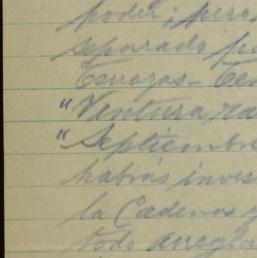 poder; pero
separado p
Terrazas - Te
"Ventura ra
"Septiembre
habrás inves
la Cadena y
todo arregla